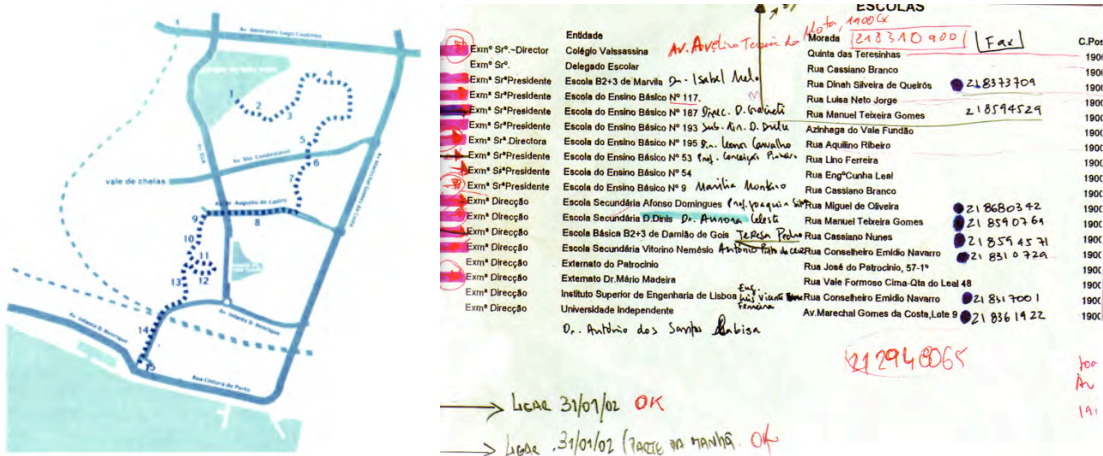 Av. Almirante Gago Coutinho
1
2
3
4
5
6
7
8
9
10
11
12
13
14
15
vale de chelas
Av. Augusto de Castro
Av. Infante D. Henrique
Av. Infante D. Henrique
Rua Cintura do Porto
ESCOLAS
Av. Avelino Teixeira da Mota, 1900 Lx
Entidade Morada 218310900 Fax C.Pos
Exmº Srº.-Director Colégio Valssassina Quinta das Teresinhas 190
Exmº Srº. Delegado Escolar Rua Cassiano Branco 190
Exmª SrªPresidente Escola B2+3 de Marvila Drª. Isabel Melo Rua Dinah Silveira de Queirós 218373709 190
Exmª SrªPresidente Escola do Ensino Básico Nº 117. Rua Luisa Neto Jorge 190
Exmª SrªPresidente Escola do Ensino Básico Nº 187 Direc. D. Rua Manuel Teixeira Gomes 218594529 190
Exmª SrªPresidente Escola do Ensino Básico Nº 193 Azinhaga do Vale Fundão 190
Exmª Srª.Directora Escola do Ensino Básico Nº 195 Lena Carvalho Rua Aquilino Ribeiro 190
Exmª SrªPresidente Escola do Ensino Básico Nº 53 Prof. Conceição Rua Lino Ferreira 190
Exmª SrªPresidente Escola do Ensino Básico Nº 54 Rua EngºCunha Leal 190
Exmª SrªPresidente Escola do Ensino Básico Nº 9 Marília Monteiro Rua Cassiano Branco 190
Exmª Direcção Escola Secundária Afonso Domingues Prof. Joaquim Silva Rua Miguel de Oliveira 218680342 190
Exmª Direcção Escola Secundária D.Dinis Drª. Aurora Celeste Rua Manuel Teixeira Gomes 218590761 190
Exmª Direcção Escola Básica B2+3 de Damião de Gois Teresa Pedro Rua Cassiano Nunes 218594571 190
Exmª Direcção Escola Secundária Vitorino Nemésio António Rua Conselheiro Emidio Navarro 218310729 190
Exmª Direcção Externato do Patrocinio Rua José do Patrocinio, 57-1º 190
Exmª Direcção Externato Dr.Mário Madeira Rua Vale Formoso Cima-Qta do Leal 48 190
Exmª Direcção Instituto Superior de Engenharia de Lisboa Eng. Luís Vicente Ferreira Rua Conselheiro Emidio Navarro 218317001 190
Exmª Direcção Universidade Independente Av.Marechal Gomes da Costa,Lote 9 218361922 190
Dr. António dos Santos Labisa
212948065
LIGAR 31/01/02 OK
LIGAR 31/01/02 (PARTE DA MANHÃ. OK